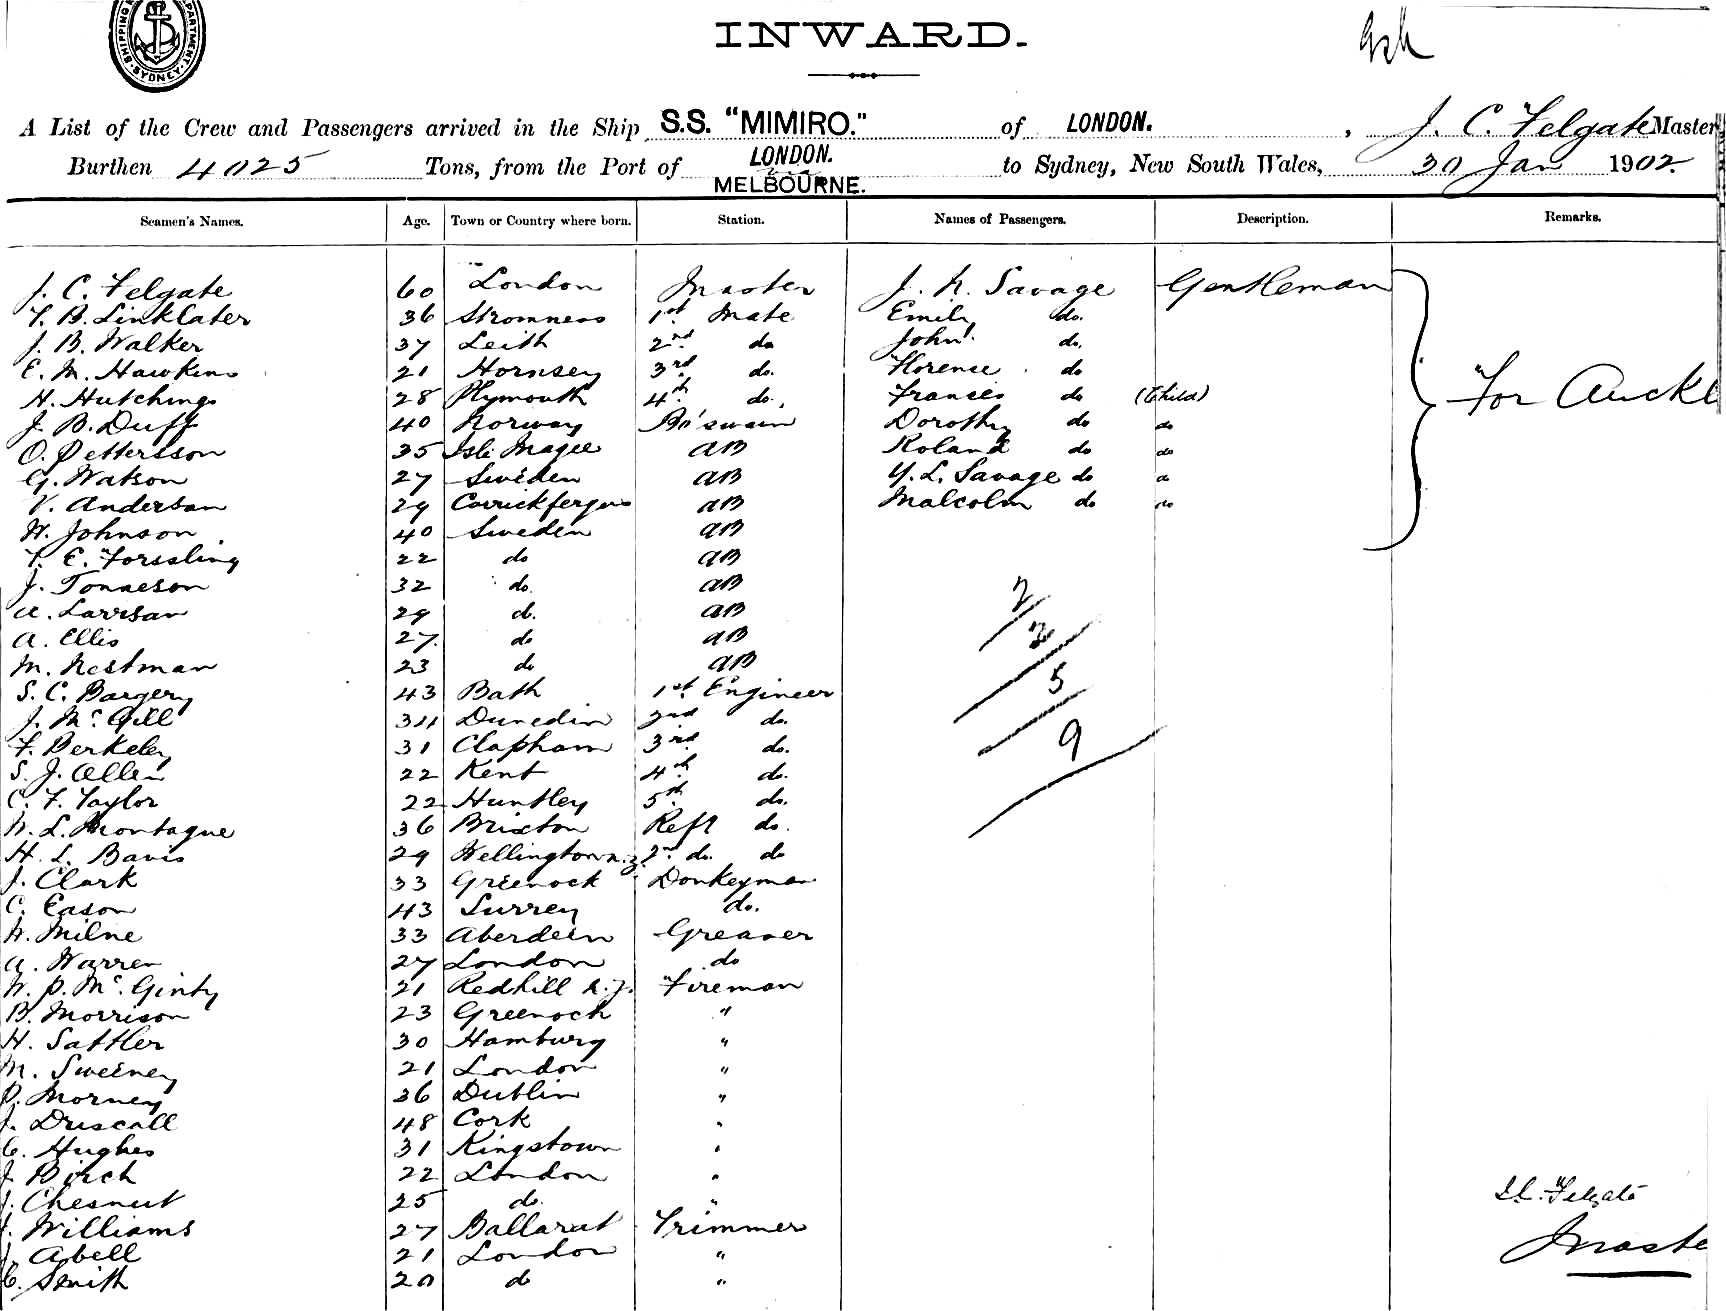 SHIPPING DEPARTMENT. SYDNEY.
INWARD.
A List of the Crew and Passengers arrived in the Ship S.S. "MIMIRO." of LONDON. , J. C. Felgate Master
Burthen 4025 Tons, from the Port of LONDON. via MELBOURNE. to Sydney, New South Wales, 30 Jan 1902
Seamen's Names. Age. Town or Country where born. Station. Names of Passengers. Description. Remarks.
J. C. Felgate 60 London Master J. N. Savage Gentleman
T. B. Linklater 36 Stromness 1st Mate Emily do.
J. B. Walker 37 Leith 2nd do John do.
E. M. Hawkins 21 Hornsey 3rd do. Florence do For Auckl
H. Hutchings 28 Plymouth 4th do. Frances do (Child)
J. B. Duff 40 Norway Bo'swain Dorothy do do
O. Pettersson 35 Isle Magee AB Roland do do
G. Watson 27 Sweden AB Y. L. Savage do
V. Anderson 29 Carrickfergus AB Malcolm do do
W. Johnson 40 Sweden AB
T. E. Forssling 22 do AB
J. Tonneson 32 do. AB
A. Larrsan 29 d. AB
A. Ellis 27. do AB
M. Nestman 23 do AB
S. C. Bargery 43 Bath 1st Engineer
J. Mc Gill 34 Dunedin 2nd do.
F. Berkeley 31 Clapham 3rd do.
S. J. Allen 22 Kent 4th do.
C. F. Taylor 22 Huntley 5th do.
W. L. Montague 36 Brixton Refr do.
H. L. Bavis 29 Wellington N.Z. 2nd do. do
J. Clark 33 Greenock Donkeyman
C. Eason 43 Surrey do.
W. Milne 33 Aberdeen Greaser
A. Warren 27 London do
W. P. Mc. Ginty 21 Redhill Fireman
B. Morrison 23 Greenock "
H. Sattler 30 Hamburg "
M. Sweeney 21 London "
P. Morney 36 Dublin "
J. Driscall 48 Cork "
C. Hughes 31 Kingstown "
J Birch 22 London "
J. Chesnut 25 do. "
Williams 27 Ballarat Trimmer
J. Abell 21 London "
C. Smith 20 do "
2
3
5
9
J. C. Felgate
Maste